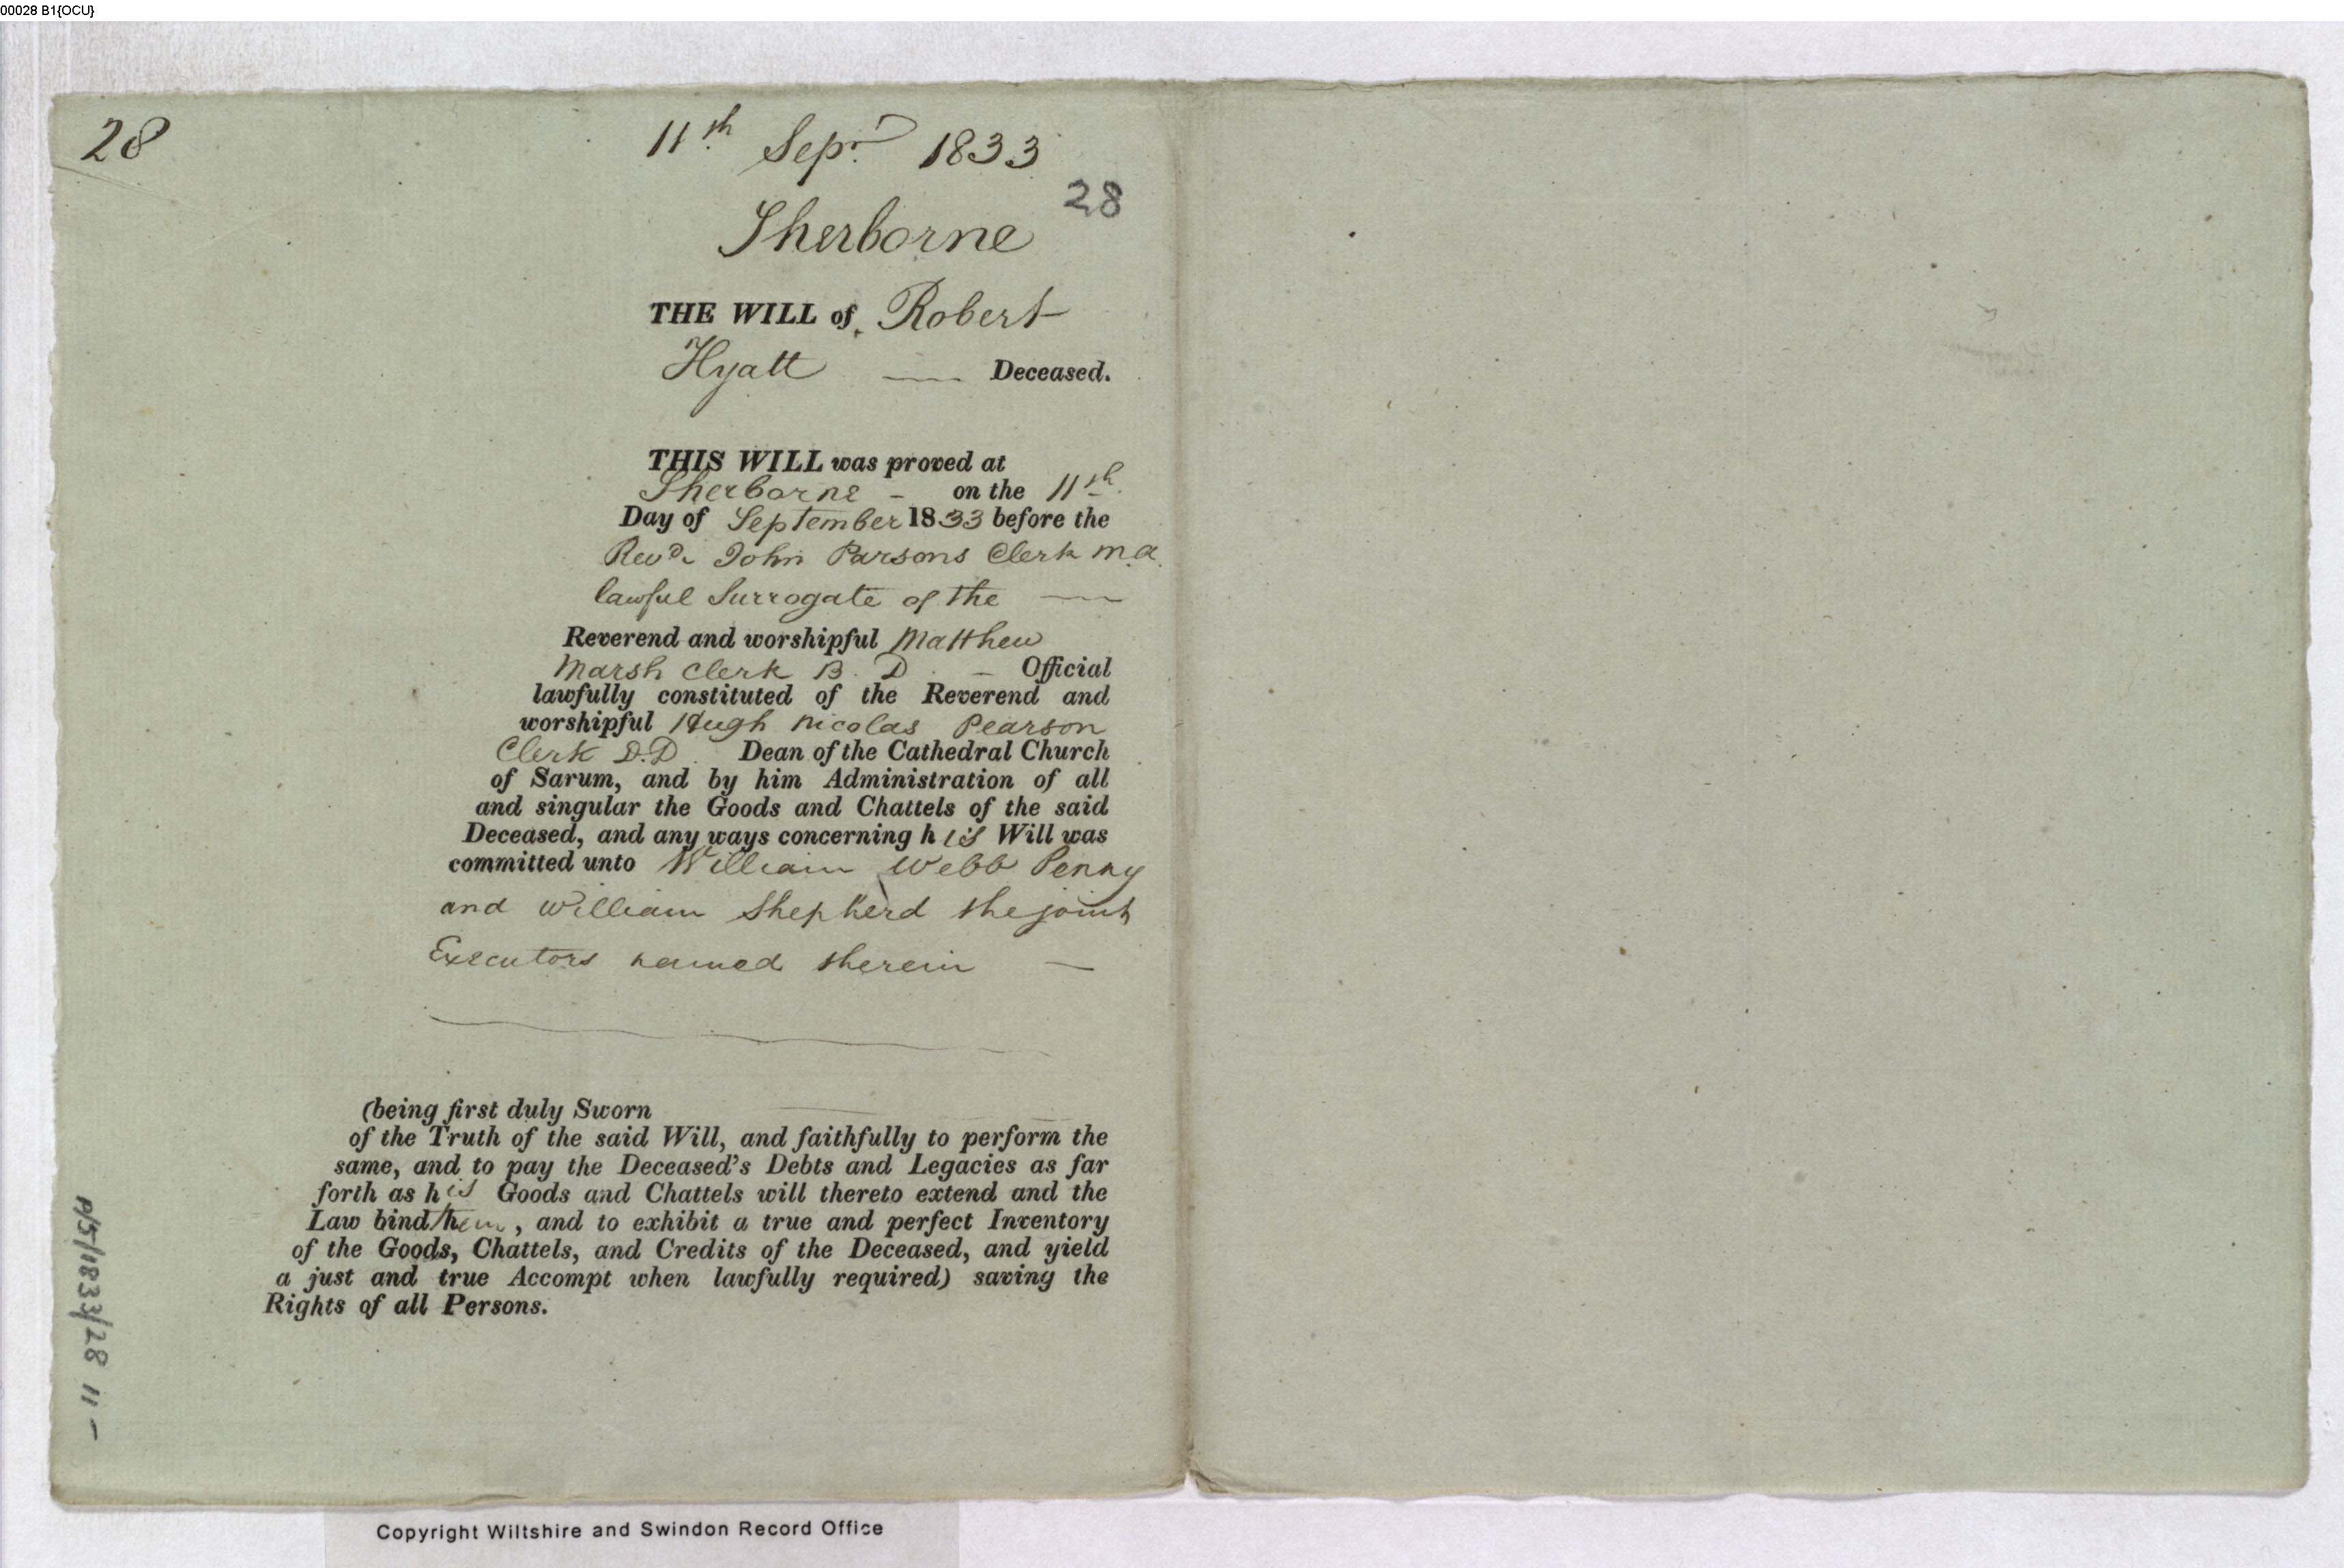 00028 B1{OCU}
28
11th. Sepr. 1833
28
Sherborne
THE WILL of Robert
Hyatt — Deceased.
THIS WILL was proved at
Sherborne - on the 11th.
Day of September 1833 before the
Revd. John Parsons Clerk M.A.
lawful Surrogate of the —
Reverend and worshipful Matthew
Marsh Clerk B. D. - Official
lawfully constituted of the Reverend and
worshipful Hugh Nicolas Pearson
Clerk D.D. Dean of the Cathedral Church
of Sarum, and by him Administration of all
and singular the Goods and Chattels of the said
Deceased, and any ways concerning his Will was
committed unto William Webb Penny
and William Shepherd the joint
Executors named therein —
(being first duly Sworn
of the Truth of the said Will, and faithfully to perform the
same, and to pay the Deceased's Debts and Legacies as far
forth as his Goods and Chattels will thereto extend and the
Law bind them, and to exhibit a true and perfect Inventory
of the Goods, Chattels, and Credits of the Deceased, and yield
a just and true Accompt when lawfully required) saving the
Rights of all Persons.
Copyright Wiltshire and Swindon Record Office